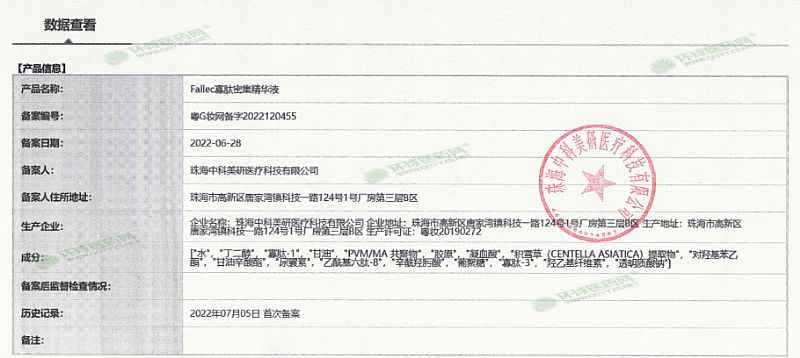 数据查看
【产品信息】
产品名称: Fallec寡肽密集精华液
备案编号: 粤G妆网备字2022120455
备案日期: 2022-06-28
备案人: 珠海中科美研医疗科技有限公司
备案人住所地址: 珠海市高新区唐家湾镇科技一路124号1号厂房第三层8区
生产企业: 企业名称: 珠海中科美研医疗科技有限公司 企业地址: 珠海市高新区唐家湾镇科技一路124号1号厂房第三层8区 生产地址: 珠海市高新区
唐家湾镇科技一路124号1号厂房第三层8区 生产许可证: 粤妆20190272
成分: ["水", "丁二醇", "寡肽-1", "甘油", "PVM/MA 共聚物", "胶原", "凝血酸", "积雪草 (CENTELLA ASIATICA) 提取物", "对羟基苯乙
酮", "甘油辛酸酯", "尿囊素", "乙酰基六肽-8", "辛酰羟肟酸", "葡聚糖", "寡肽-3", "羟乙基纤维素", "透明质酸钠"]
备案后监督检查情况:
历史记录: 2022年07月05日 首次备案
备注:
珠海中科美研医疗科技有限公司
环球医药网
环球医药网
环球医药网
环球医药网
环球医药网